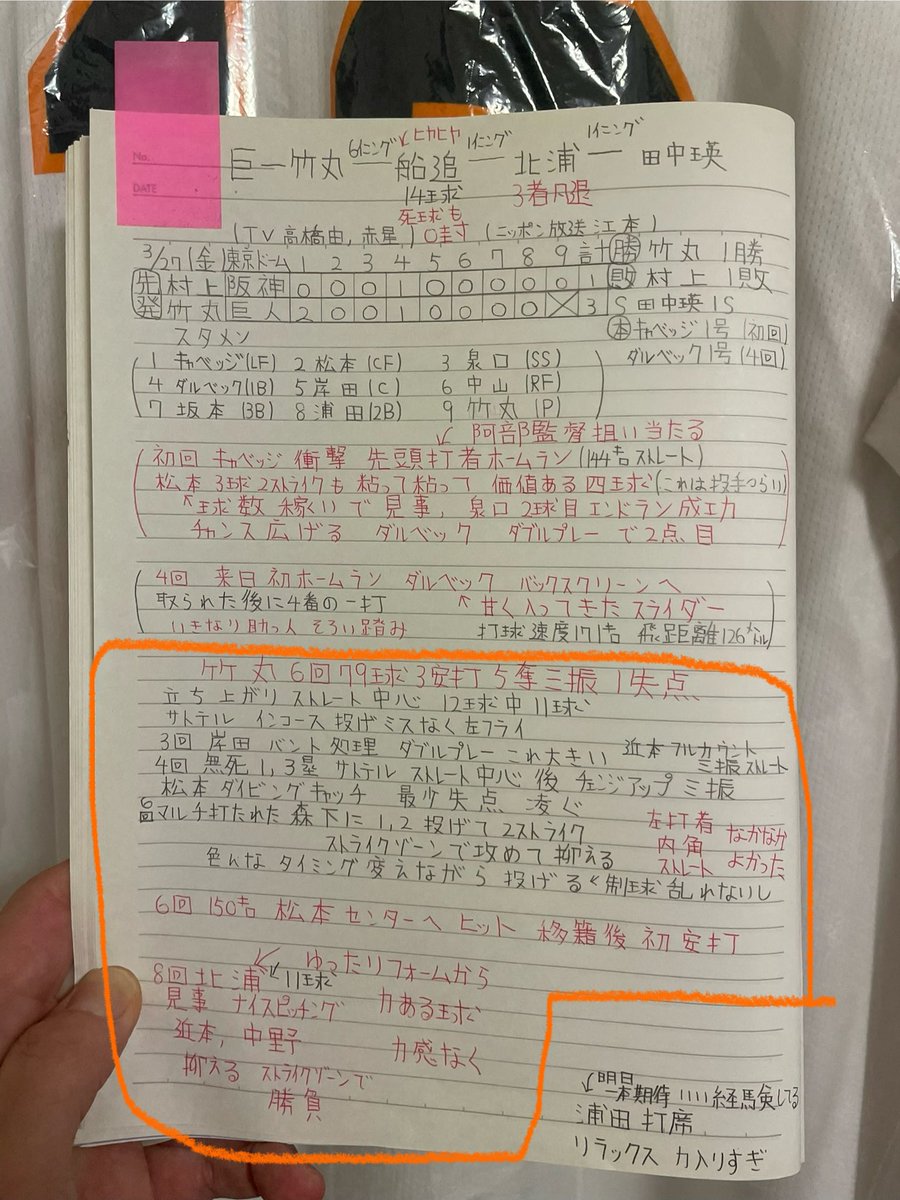 No.
DATE
6イニング ↙ヒヤヒヤ 1イニング 1イニング
巨―竹丸―船迫―北浦―田中瑛
14球 3者凡退
死球も
0封
(TV 高橋由, 赤星) (ニッポン放送 江本)
3/27(金)東京ドーム 1 2 3 4 5 6 7 8 9 計 勝 竹丸 1勝
先 村上 阪神 0 0 0 1 0 0 0 0 0 1 敗 村上 1敗
発 竹丸 巨人 2 0 0 1 0 0 0 0 X 3 S 田中瑛 1S
スタメン 本 キャベッジ1号 (初回)
ダルベック1号 (4回)
1 キャベッジ(LF) 2 松本(CF) 3 泉口(SS)
4 ダルベック(1B) 5 岸田(C) 6 中山(RF)
7 坂本(3B) 8 浦田(2B) 9 竹丸(P)
↙ 阿部監督狙い当たる
初回 キャベッジ 衝撃 先頭打者ホームラン(144㌔ストレート)
松本 3球2ストライクも 粘って粘って 価値ある四球(これは投手つらい)
↖球数稼いで見事, 泉口 2球目エンドラン成功
チャンス広げる ダルベック ダブルプレーで2点目
4回 来日初ホームラン ダルベック バックスクリーンへ
取られた後に4番の一打 ↖甘く入ってきたスライダー
いきなり助っ人 そろい踏み 打球速度171㌔ 飛距離126㍍
竹丸 6回79球3安打5奪三振1失点
立ち上がり ストレート中心 12球中11球
サトテル インコース 投げミスなく左フライ
3回 岸田 バント処理 ダブルプレー これ大きい 近本 フルカウント
三振ストレート
4回 無死1,3塁 サトテル ストレート中心後 チェンジアップ三振
松本ダイビングキャッチ 最少失点 凌ぐ
6回マルチ打たれた森下に1,2投げて2ストライク
ストライクゾーンで攻めて抑える
左打者 なかなか
内角 よかった
ストレート
色んなタイミング変えながら投げる↖制球乱れないし
6回 150㌔ 松本 センターへ ヒット 移籍後初安打
↙ ゆったりフォームから
8回北浦↙11球
見事 ナイスピッチング 力ある球
近本, 中野 力感なく
抑える ストライクゾーンで
勝負
↙明日
一本期待 いい経験してる
浦田打席
リラックス 力入りすぎ